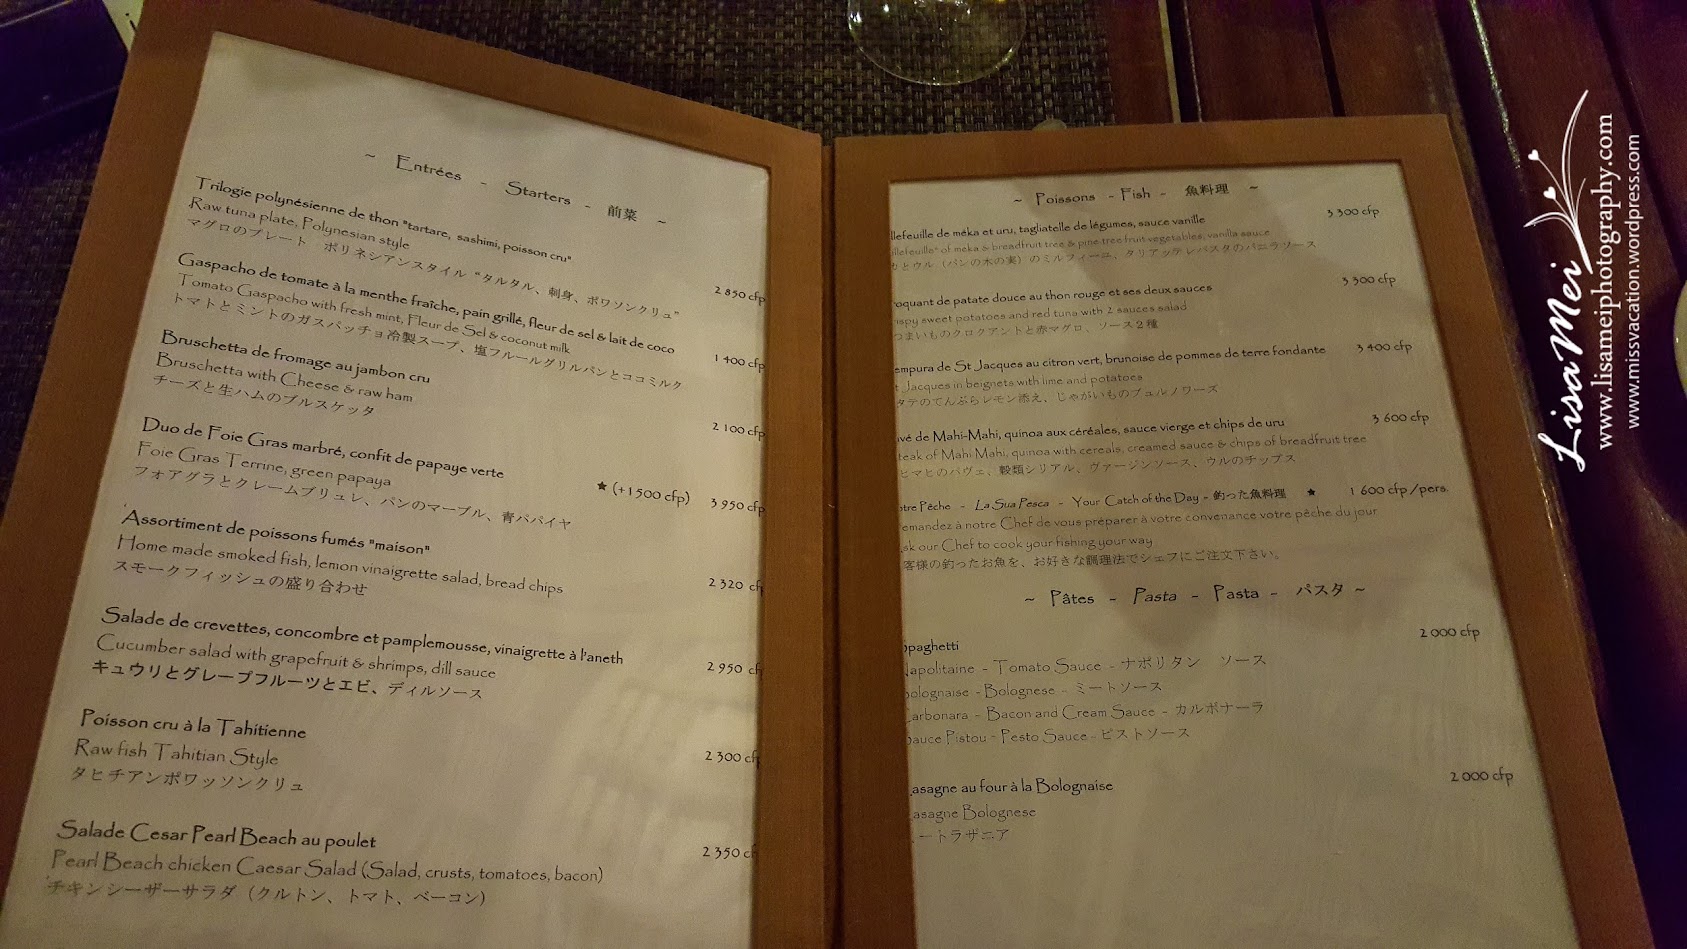 ~ Entrées - Starters - 前菜 ~
Trilogie polynésienne de thon "tartare, sashimi, poisson cru"
Raw tuna plate, Polynesian style
マグロのプレート ポリネシアンスタイル "タルタル、刺身、ポワソンクリュ"
2 850 cfp
Gaspacho de tomate à la menthe fraîche, pain grillé, fleur de sel & lait de coco
Tomato Gaspacho with fresh mint, Fleur de Sel & coconut milk
トマトとミントのガスパッチョ冷製スープ、塩フルールグリルパンとココミルク
1 400 cfp
Bruschetta de fromage au jambon cru
Bruschetta with Cheese & raw ham
チーズと生ハムのブルスケッタ
2 100 cfp
Duo de Foie Gras marbré, confit de papaye verte
Foie Gras Terrine, green papaya
フォアグラとクレームブリュレ、パンのマーブル、青パパイヤ
★ (+1 500 cfp) 3 950 cfp
Assortiment de poissons fumés "maison"
Home made smoked fish, lemon vinaigrette salad, bread chips
スモークフィッシュの盛り合わせ
2 320 cf
Salade de crevettes, concombre et pamplemousse, vinaigrette à l'aneth
Cucumber salad with grapefruit & shrimps, dill sauce
キュウリとグレープフルーツとエビ、ディルソース
2 950 cf
Poisson cru à la Tahitienne
Raw fish Tahitian Style
タヒチアンポワッソンクリュ
2 300 cf
Salade Cesar Pearl Beach au poulet
Pearl Beach chicken Caesar Salad (Salad, crusts, tomatoes, bacon)
チキンシーザーサラダ (クルトン、トマト、ベーコン)
2 350 cf
~ Poissons - Fish - 魚料理 ~
llefeuille de méka et uru, tagliatelle de légumes, sauce vanille 3 300 cfp
illefeuille" of meka & breadfruit tree & pine tree fruit vegetables, vanilla sauce
カとウル (パンの木の実) のミルフィーユ、タリアッテレパスタのバニラソース
oquant de patate douce au thon rouge et ses deux sauces 3 300 cfp
ispy sweet potatoes and red tuna with 2 sauces salad
つまいものクロクアントと赤マグロ、ソース２種
empura de St Jacques au citron vert, brunoise de pommes de terre fondante 3 400 cfp
t Jacques in beignets with lime and potatoes
タテのてんぷらレモン添え、じゃがいものブュルノワーズ
avé de Mahi-Mahi, quinoa aux céréales, sauce vierge et chips de uru 3 600 cfp
teak of Mahi Mahi, quinoa with cereals, creamed sauce & chips of breadfruit tree
ヒマヒのパヴェ、穀類シリアル、ヴァージンソース、ウルのチップス
otre Pêche - La Sua Pesca - Your Catch of the Day - 釣った魚料理 ★ 1 600 cfp /pers.
emandez à notre Chef de vous préparer à votre convenance votre pêche du jour
sk our Chef to cook your fishing your way
客様の釣ったお魚を、お好きな調理法でシェフにご注文下さい。
~ Pâtes - Pasta - Pasta - パスタ ~
paghetti 2 000 cfp
Napolitaine - Tomato Sauce - ナポリタン ソース
bolognaise - Bolognese - ミートソース
Carbonara - Bacon and Cream Sauce - カルボナーラ
auce Pistou - Pesto Sauce - ピストソース
asagne au four à la Bolognaise 2 000 cfp
asagne Bolognese
ートラザニア
LisaMei
www.lisameiphotography.com
www.missvacation.wordpress.com